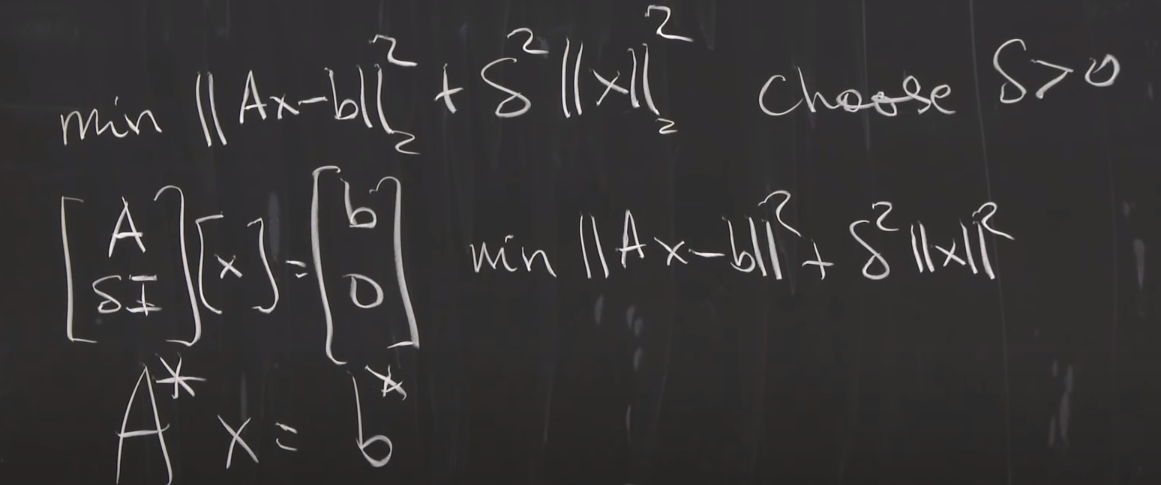 min ||Ax-b||₂² + δ²||x||₂² Choose δ>0
[A δI][x] = [b 0] min ||Ax-b||² + δ²||x||²
A* x = b*